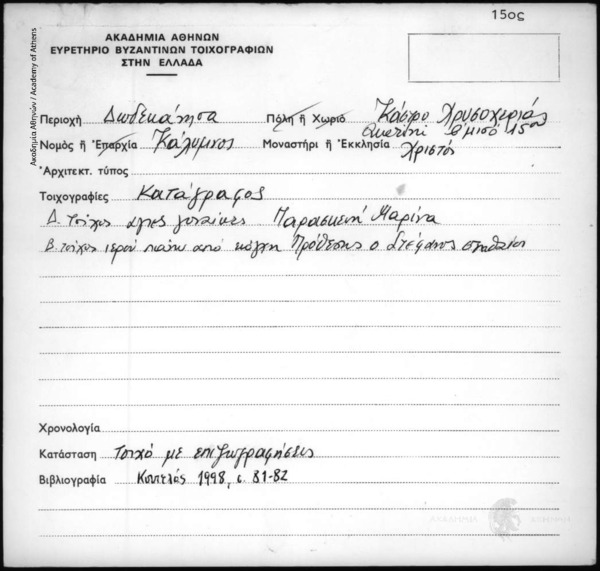 15ος
Ακαδημία Αθηνών / Academy of Athens
ΑΚΑΔΗΜΙΑ ΑΘΗΝΩΝ
ΕΥΡΕΤΗΡΙΟ ΒΥΖΑΝΤΙΝΩΝ ΤΟΙΧΟΓΡΑΦΙΩΝ
ΣΤΗΝ ΕΛΛΑΔΑ
Περιοχή Δωδεκάνησα Πόλη ἤ Χωριό Κάστρο Χρυσοχεριάς
Querini β μισό 15ου
Νομός ἤ Ἐπαρχία Κάλυμνος Μοναστήρι ἤ Ἐκκλησία Χριστός
Ἀρχιτεκτ. τύπος
Τοιχογραφίες Κατάγραφος
Δ. τοίχος άγιες γυναίκες Παρασκευή Μαρίνα
Β. τοίχος ιερού πάνω από κόγχη Πρόθεσης ο Στέφανος στηθαίος
Χρονολογία
Κατάσταση Τοιχο με επιζωγραφήσεις
Βιβλιογραφία Κουτελάς 1998, σ. 81-82
ΑΚΑΔΗΜΙΑ ΑΘΗΝΩΝ